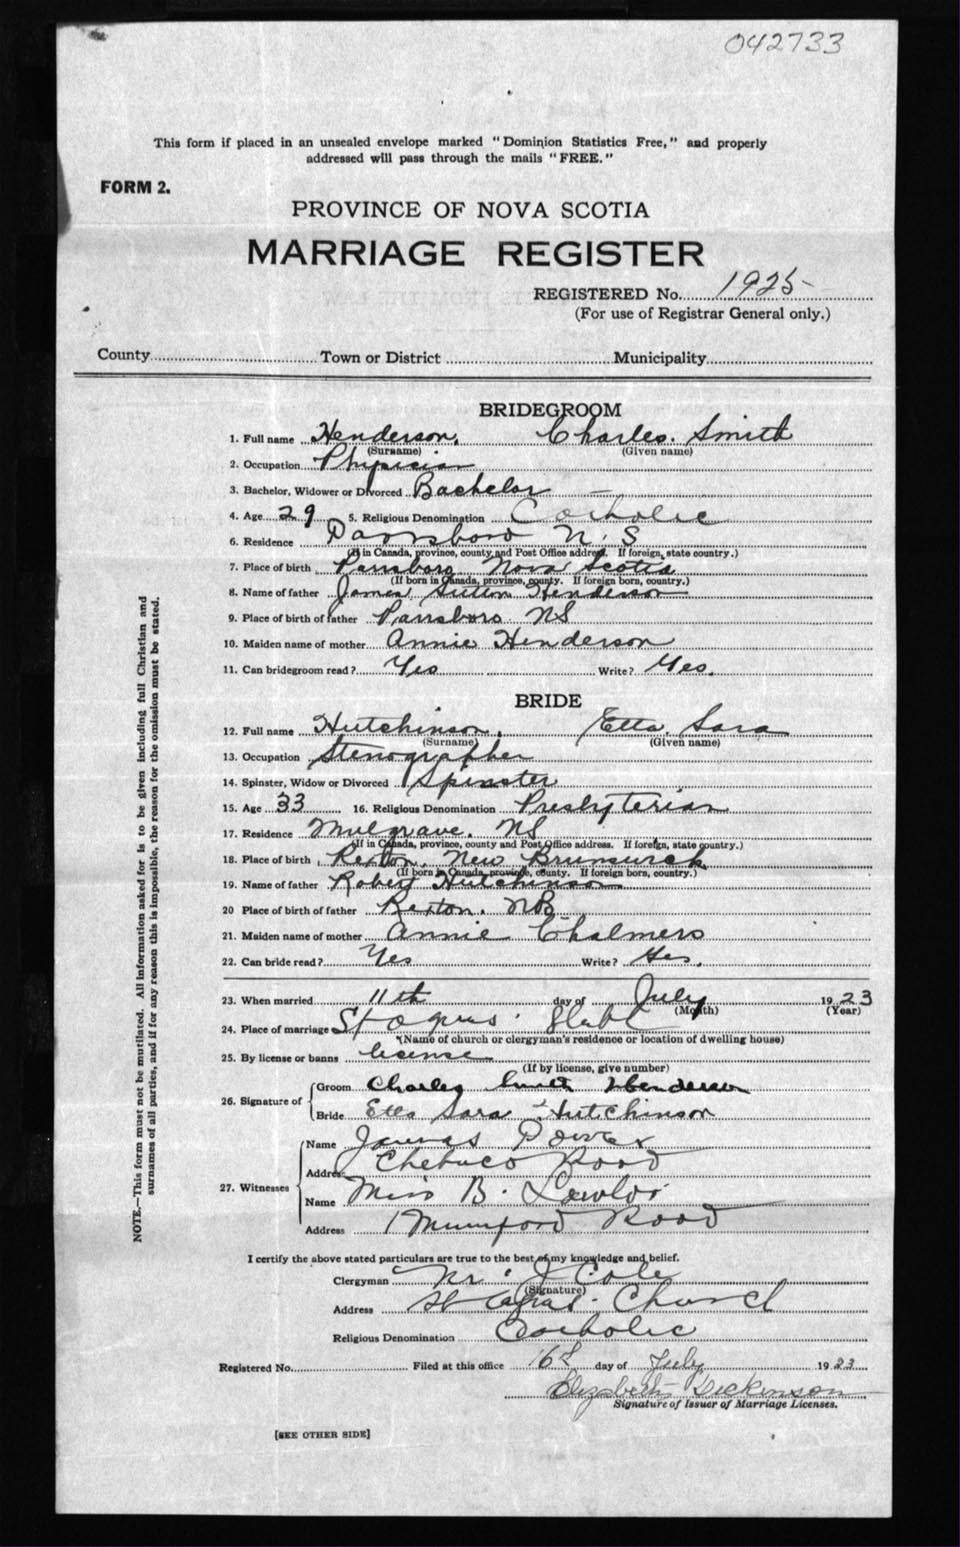 042733
This form if placed in an unsealed envelope marked "Dominion Statistics Free," and properly
addressed will pass through the mails "FREE."
FORM 2.
PROVINCE OF NOVA SCOTIA
MARRIAGE REGISTER
REGISTERED No. 1925
(For use of Registrar General only.)
County Town or District Municipality
BRIDEGROOM
1. Full name Henderson, Charles. Smith
(Surname) (Given name)
2. Occupation Physician
3. Bachelor, Widower or Divorced Bachelor
4. Age 29 5. Religious Denomination Catholic
6. Residence Parrsboro N. S
(If in Canada, province, county and Post Office address. If foreign, state country.)
7. Place of birth Parrsboro Nova Scotia
(If born in Canada, province, county. If foreign born, country.)
8. Name of father James Sutton Henderson
9. Place of birth of father Parrsboro NS
10. Maiden name of mother Annie Henderson
11. Can bridegroom read? Yes Write? Yes.
BRIDE
12. Full name Hutchinson, Etta, Sara
(Surname) (Given name)
13. Occupation Stenographer
14. Spinster, Widow or Divorced Spinster
15. Age 33 16. Religious Denomination Presbyterian
17. Residence Mulgrave. NS
(If in Canada, province, county and Post Office address. If foreign, state country.)
18. Place of birth Rexton, New Brunswick
(If born in Canada, province, county. If foreign born, country.)
19. Name of father Robert Hutchinson
20 Place of birth of father Rexton. NB
21. Maiden name of mother Annie Chalmers
22. Can bride read? Yes Write? Yes.
23. When married 11th day of July 1923
(Month) (Year)
24. Place of marriage St Agnes
(Name of church or clergyman's residence or location of dwelling house)
25. By license or banns license
(If by license, give number)
26. Signature of Groom Charles Smith Henderson
Bride Etta Sara Hutchinson
27. Witnesses Name Power
Address Chebucto Road
Name Miss B. Lawlor
Address Mumford Road
I certify the above stated particulars are true to the best of my knowledge and belief.
Clergyman J Cole
(Signature)
Address St Agnes Church
Religious Denomination Catholic
Registered No. Filed at this office 16th day of July 1923
Elizabeth Dickinson
Signature of Issuer of Marriage Licenses.
[SEE OTHER SIDE]
NOTE.—This form must not be mutilated. All information asked for is to be given including full Christian and
surnames of all parties, and if for any reason this is impossible, the reason for the omission must be stated.